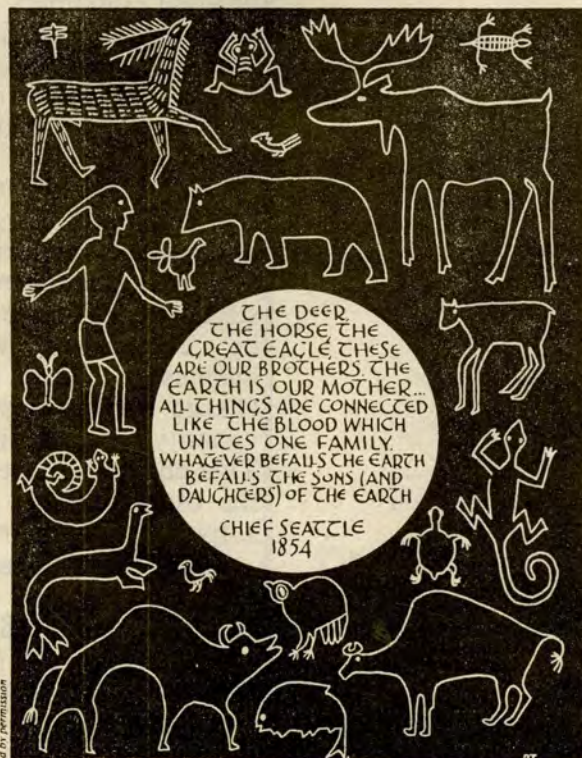 THE DEER,
THE HORSE, THE
GREAT EAGLE, THESE
ARE OUR BROTHERS. THE
EARTH IS OUR MOTHER...
ALL THINGS ARE CONNECTED
LIKE THE BLOOD WHICH
UNITES ONE FAMILY.
WHATEVER BEFALLS THE EARTH
BEFALLS THE SONS (AND
DAUGHTERS) OF THE EARTH
CHIEF SEATTLE
1854
by permission